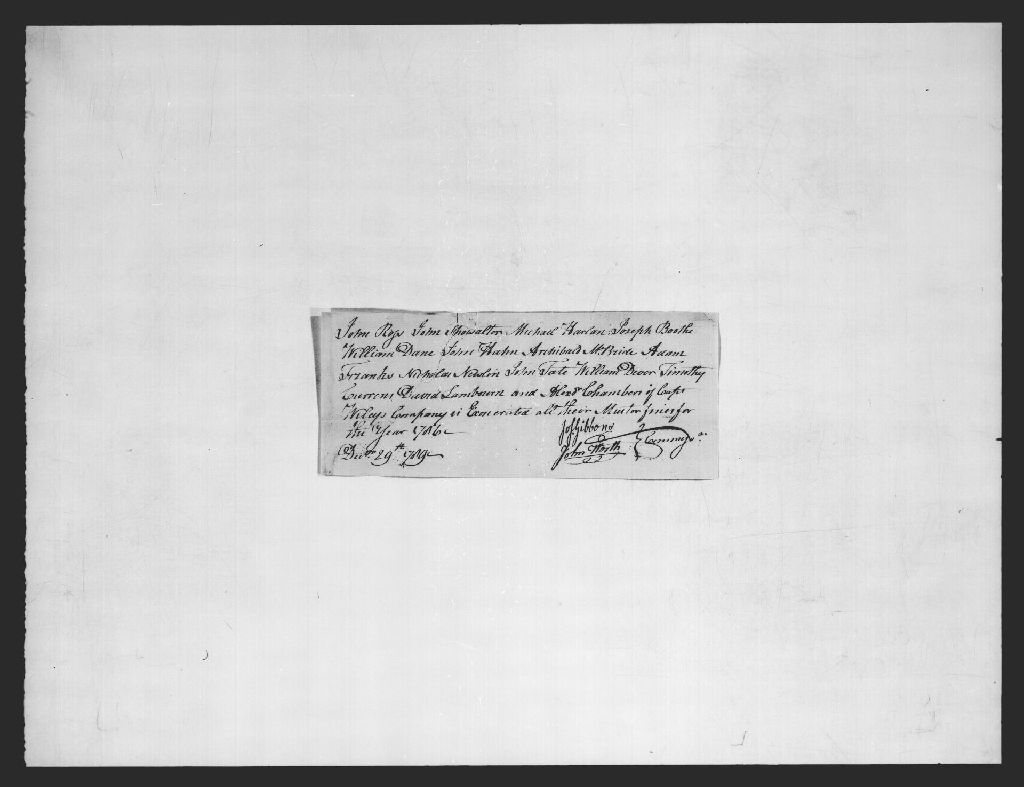 John Ross John Showalter Michael Harlan Joseph Booths
William Dane John Hahn Archibald McBride Adam
Franks Nicholas Newlin John Tate William Devor Timothy
Currens David Lambourn and Alexdr Chambers of Capt
Wileys Company is Exonerated all their Muster fines for
the Year 1786
Decbr 29th 1789
Jos Gibbons
John Worth
Commissrs